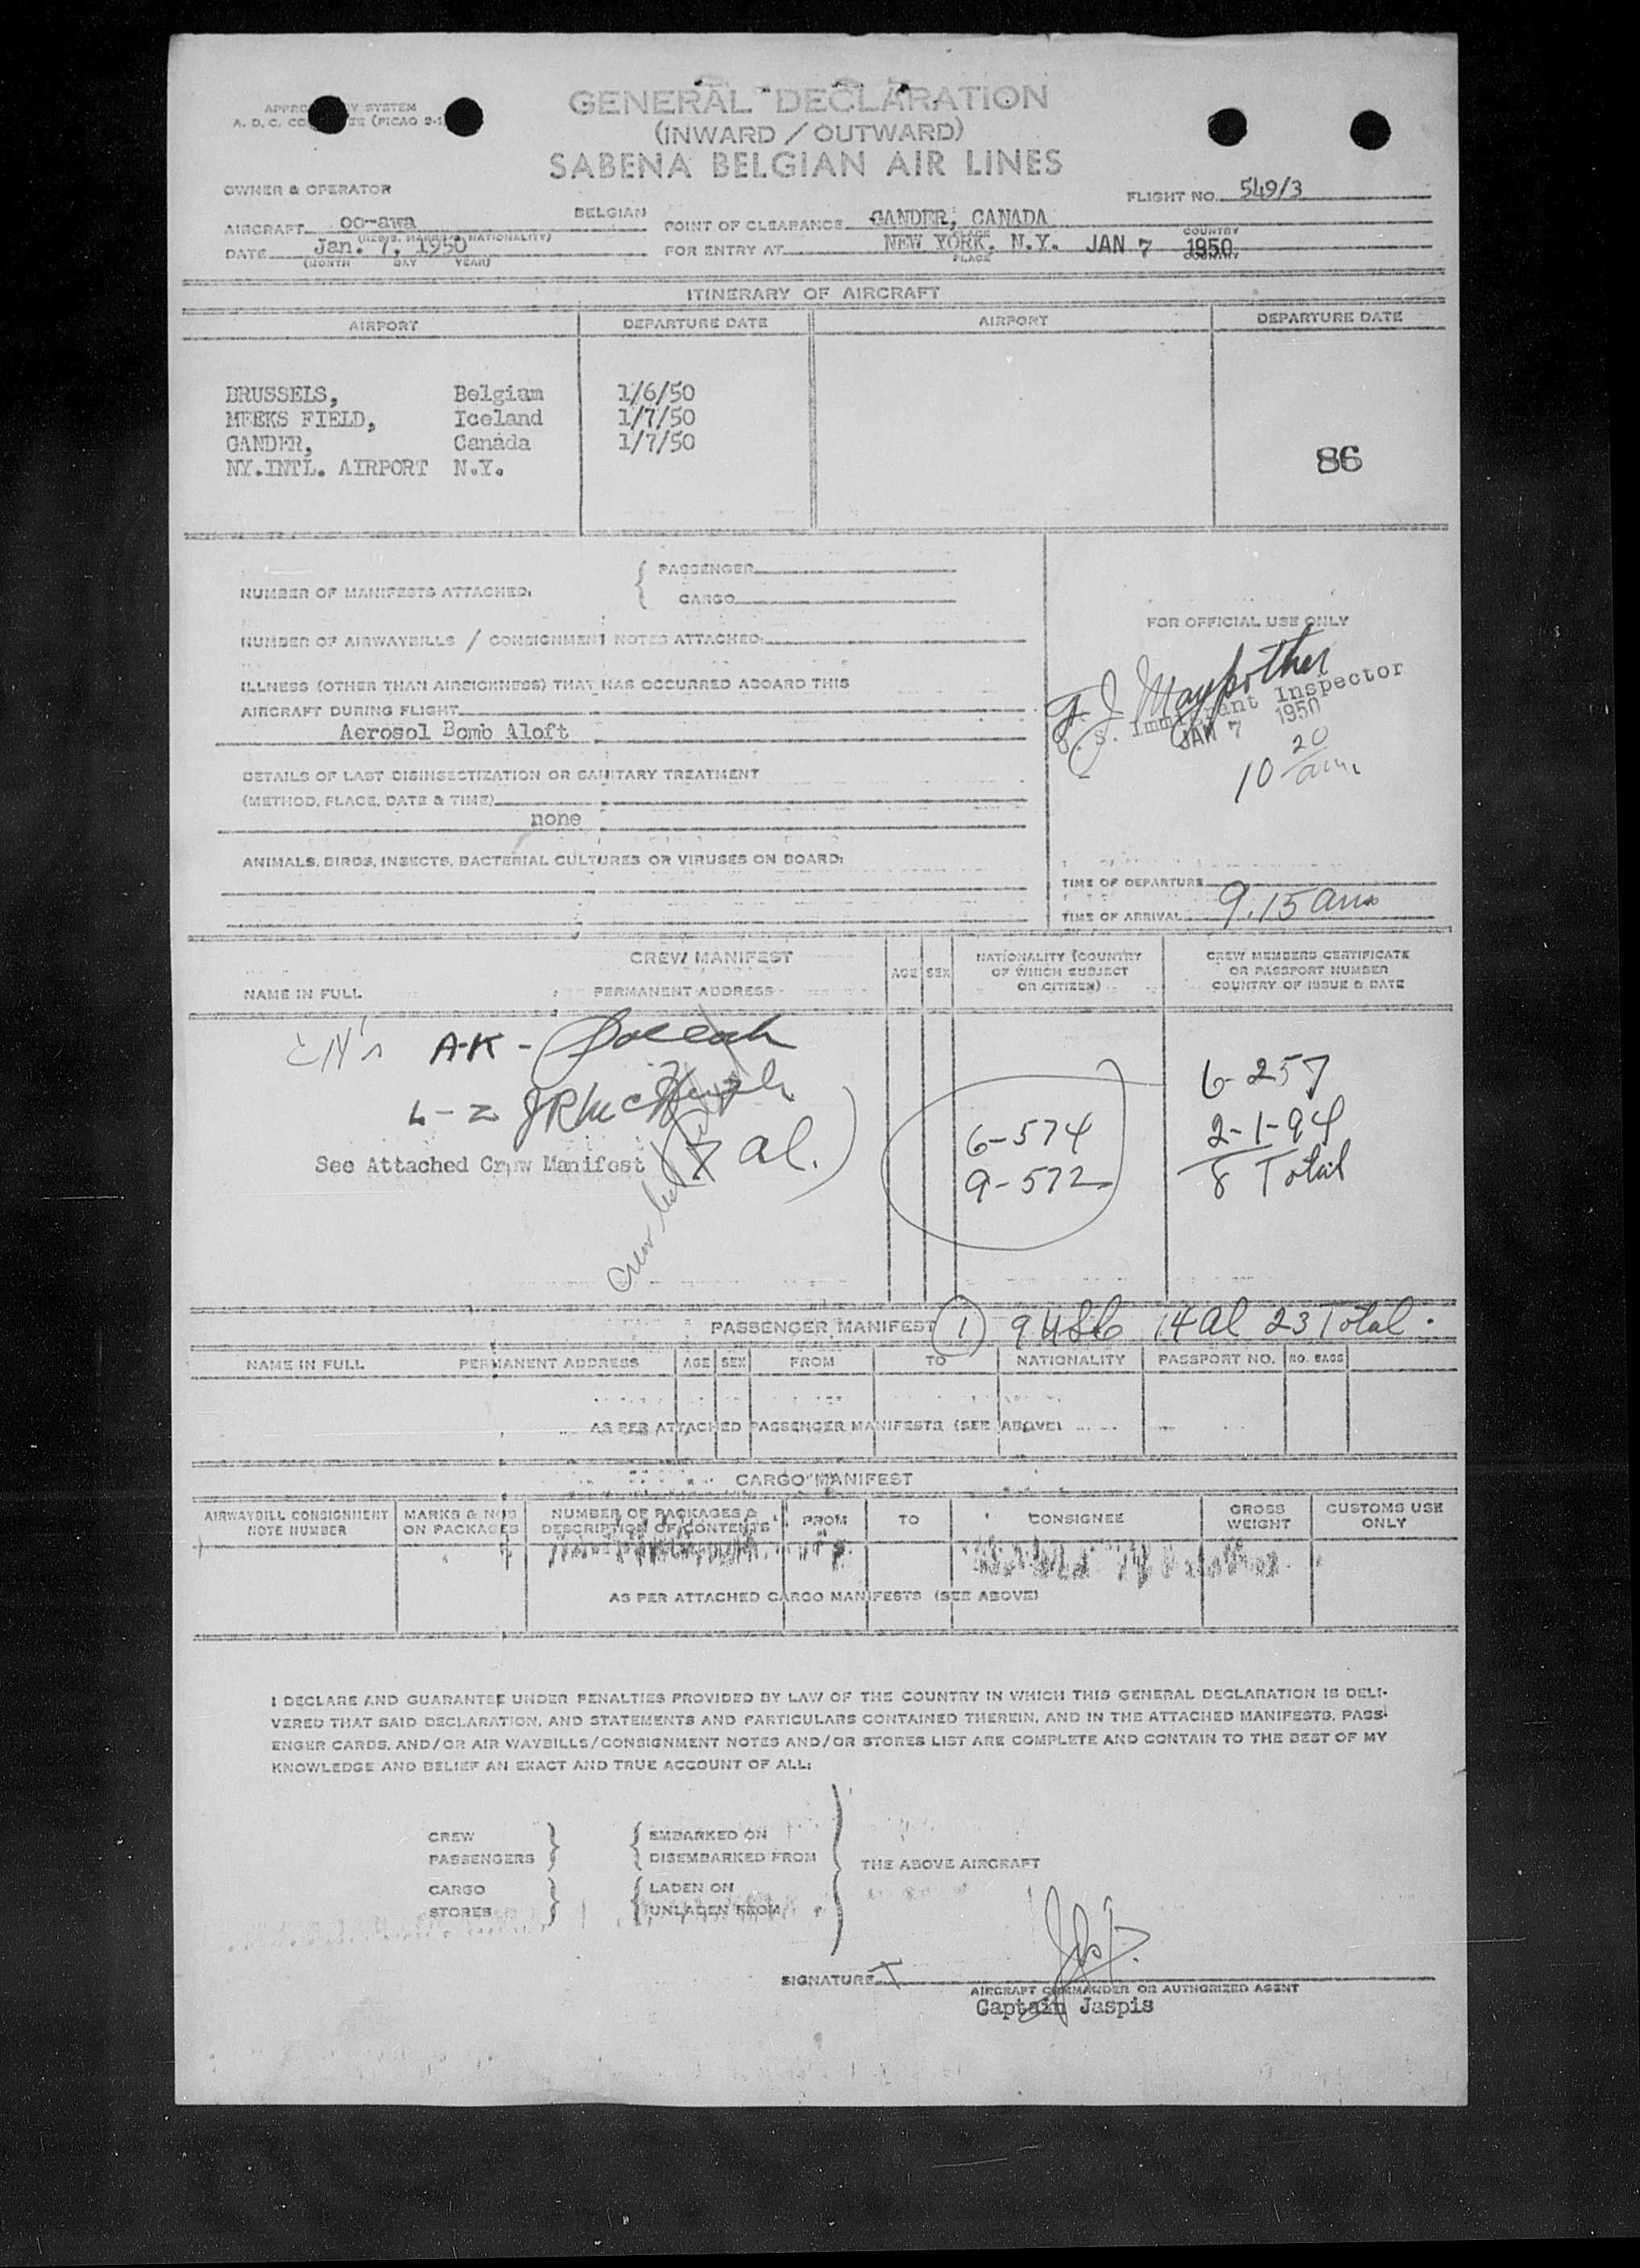 GENERAL DECLARATION
(INWARD / OUTWARD)
SABENA BELGIAN AIR LINES
SYSTEM
A. D. C. (PICAO 2-1
OWNER & OPERATOR
FLIGHT NO. 549/3
AIRCRAFT oo-awa BELGIAN
(REGIS. MARKS & NATIONALITY)
POINT OF CLEARANCE GANDER, CANADA
COUNTRY
DATE Jan. 7, 1950
(MONTH DAY YEAR)
FOR ENTRY AT NEW YORK, N.Y. JAN 7 1950
PLACE COUNTRY
ITINERARY OF AIRCRAFT
AIRPORT DEPARTURE DATE AIRPORT DEPARTURE DATE
BRUSSELS, Belgium 1/6/50
MEEKS FIELD, Iceland 1/7/50
GANDER, Canada 1/7/50
NY.INTL. AIRPORT N.Y.
86
NUMBER OF MANIFESTS ATTACHED: { PASSENGER
CARGO
NUMBER OF AIRWAYBILLS / CONSIGNMENT NOTES ATTACHED:
ILLNESS (OTHER THAN AIRSICKNESS) THAT HAS OCCURRED ABOARD THIS
AIRCRAFT DURING FLIGHT
Aerosol Bomb Aloft
DETAILS OF LAST DISINSECTIZATION OR SANITARY TREATMENT
(METHOD, PLACE, DATE & TIME)
none
ANIMALS, BIRDS, INSECTS, BACTERIAL CULTURES OR VIRUSES ON BOARD:
FOR OFFICIAL USE ONLY
U. S. Immigrant Inspector
JAN 7 1950
10 20 am
TIME OF DEPARTURE
TIME OF ARRIVAL 9.15 am
CREW MANIFEST
NAME IN FULL PERMANENT ADDRESS AGE SEX NATIONALITY (COUNTRY OF WHICH SUBJECT OR CITIZEN) CREW MEMBERS CERTIFICATE OR PASSPORT NUMBER COUNTRY OF ISSUE & DATE
A-K -
6-257
6-574
2-1-94
See Attached Crew Manifest
9-572
8 Total
PASSENGER MANIFEST (1) 9 USC 14 al 23 Total.
NAME IN FULL PERMANENT ADDRESS AGE SEX FROM TO NATIONALITY PASSPORT NO. NO. BAGS
AS PER ATTACHED PASSENGER MANIFESTS (SEE ABOVE)
CARGO MANIFEST
AIRWAYBILL CONSIGNMENT NOTE NUMBER MARKS & NOS ON PACKAGES NUMBER OF PACKAGES & DESCRIPTION OF CONTENTS FROM TO CONSIGNEE GROSS WEIGHT CUSTOMS USE ONLY
AS PER ATTACHED CARGO MANIFESTS (SEE ABOVE)
I DECLARE AND GUARANTEE UNDER PENALTIES PROVIDED BY LAW OF THE COUNTRY IN WHICH THIS GENERAL DECLARATION IS DELI-
VERED THAT SAID DECLARATION, AND STATEMENTS AND PARTICULARS CONTAINED THEREIN, AND IN THE ATTACHED MANIFESTS, PASS-
ENGER CARDS, AND/OR AIR WAYBILLS/CONSIGNMENT NOTES AND/OR STORES LIST ARE COMPLETE AND CONTAIN TO THE BEST OF MY
KNOWLEDGE AND BELIEF AN EXACT AND TRUE ACCOUNT OF ALL:
CREW } { EMBARKED ON
PASSENGERS DISEMBARKED FROM
THE ABOVE AIRCRAFT
CARGO } { LADEN ON
STORES UNLADEN FROM
SIGNATURE
AIRCRAFT COMMANDER OR AUTHORIZED AGENT
Captain Jaspis